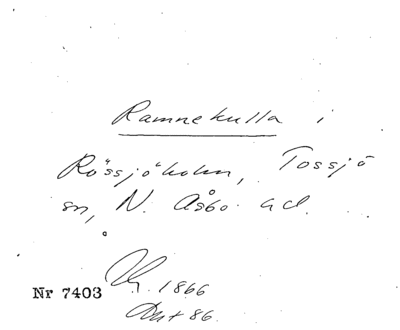 Ramnekulla i
Rössjöholm, Tossjö
sn, N. Åsbo hd.
Nr 7403
1866
Dut 86